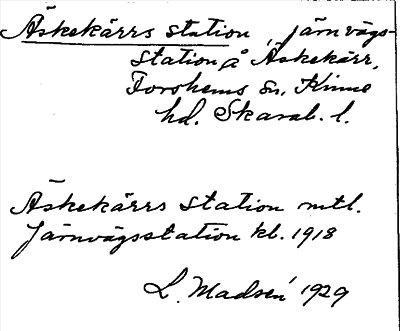 Äskekärrs station, järnvägs-
station å Äskekärr,
Forshems sn, Kinne
hd. Skarab. l.
Äskekärrs station mtl.
Järnvägsstation kl. 1918
L. Madsén 1929